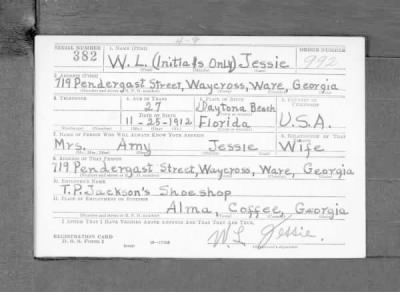 4-8
SERIAL NUMBER 1. NAME (Print) ORDER NUMBER
382 W. L. (Initials Only) Jessie 992
2. ADDRESS (Print)
719 Pendergast Street, Waycross, Ware, Georgia
3. TELEPHONE 4. AGE IN YEARS 5. PLACE OF BIRTH 6. COUNTRY OF CITIZENSHIP
27 Daytona Beach
DATE OF BIRTH
11-25-1912 Florida U.S.A.
7. NAME OF PERSON WHO WILL ALWAYS KNOW YOUR ADDRESS 8. RELATIONSHIP OF THAT PERSON
Mrs. Amy Jessie Wife
9. ADDRESS OF THAT PERSON
719 Pendergast Street, Waycross, Ware, Georgia
10. EMPLOYER'S NAME
T.P. Jackson's Shoeshop
11. PLACE OF EMPLOYMENT OR BUSINESS
Alma, Coffee, Georgia
I AFFIRM THAT I HAVE VERIFIED ABOVE ANSWERS AND THAT THEY ARE TRUE.
REGISTRATION CARD
D. S. S. FORM 1
W. L. Jessie.